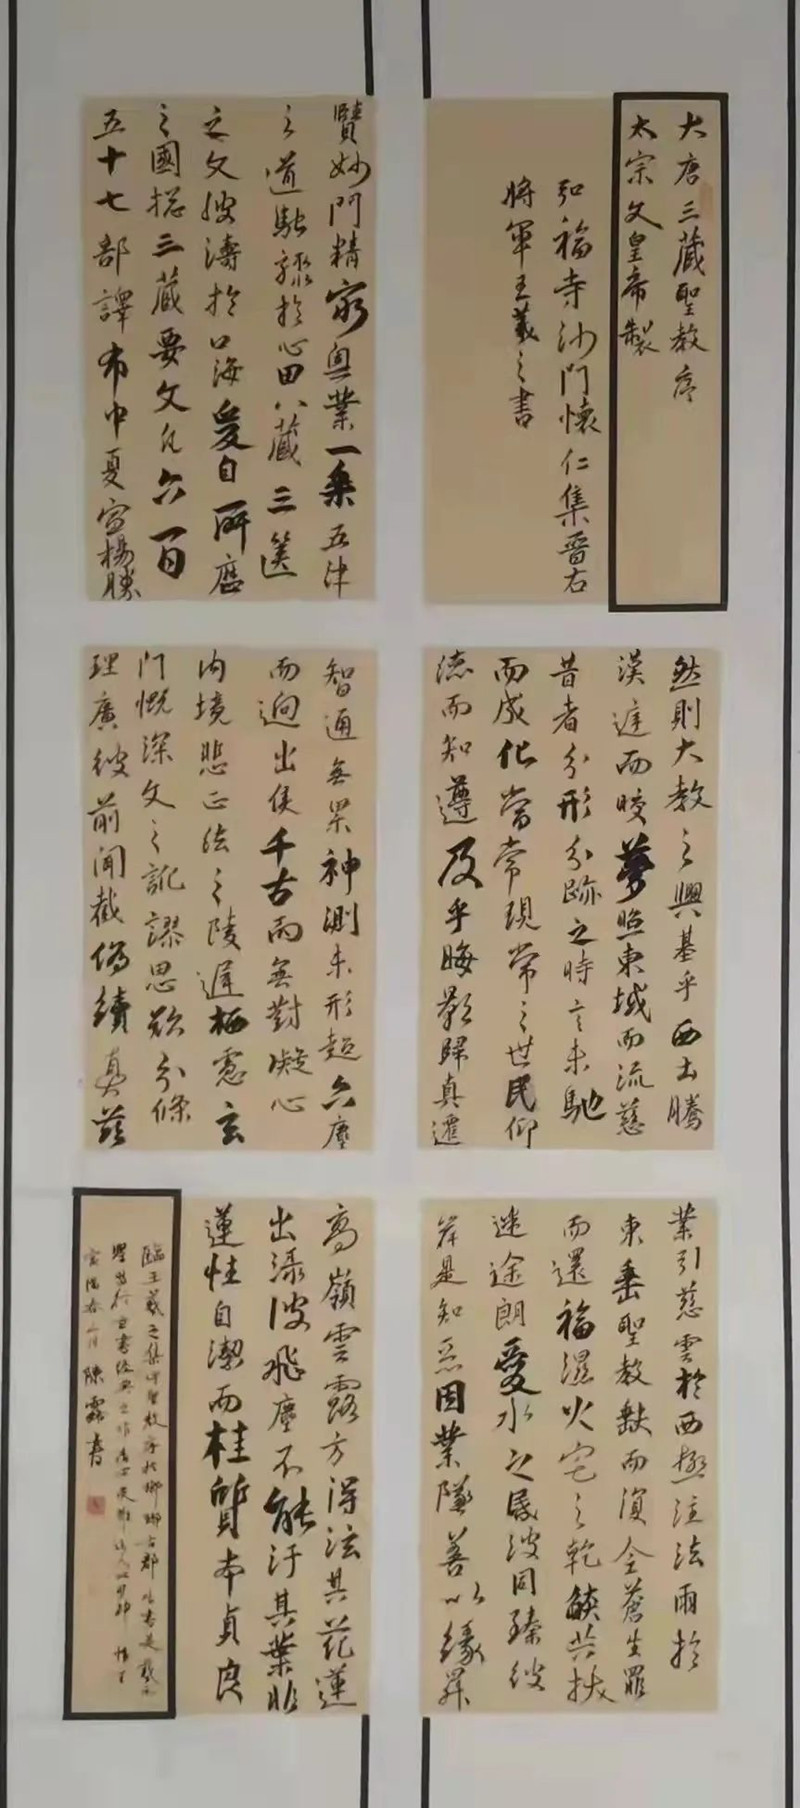 大唐三藏聖教序
太宗文皇帝製
弘福寺沙門懷仁集晉右
將軍王羲之書
賢妙門精窮奧業一乘五律
之道馳驟於心田八藏三篋
之文波濤於口海爰自所歷
之國總三藏要文凡六百
五十七部譯布中夏宣揚勝
然則大教之興基乎西土騰
漢庭而皎夢照東域而流慈
昔者分形分跡之時言未馳
而成化當常現常之世民仰
德而知遵及乎晦影歸真遷
智通無累神測未形超六塵
而迥出隻千古而無對凝心
內境悲正法之陵遲栖慮玄
門慨深文之訛謬思欲分條
理廣彼前聞截偽續真茲
業引慈雲於西極注法雨於
東垂聖教缺而復全蒼生罪
而還福濕火宅之乾燄共拔
迷途朗愛水之昏波同臻彼
岸是知惡因業墜善以緣昇
高嶺雲露方得泫其花蓮
出淥波飛塵不能汙其葉非
蓮性自潔而桂質本貞良
臨王羲之集字聖教序於瑯琊古郡
聖教序
陳霖書